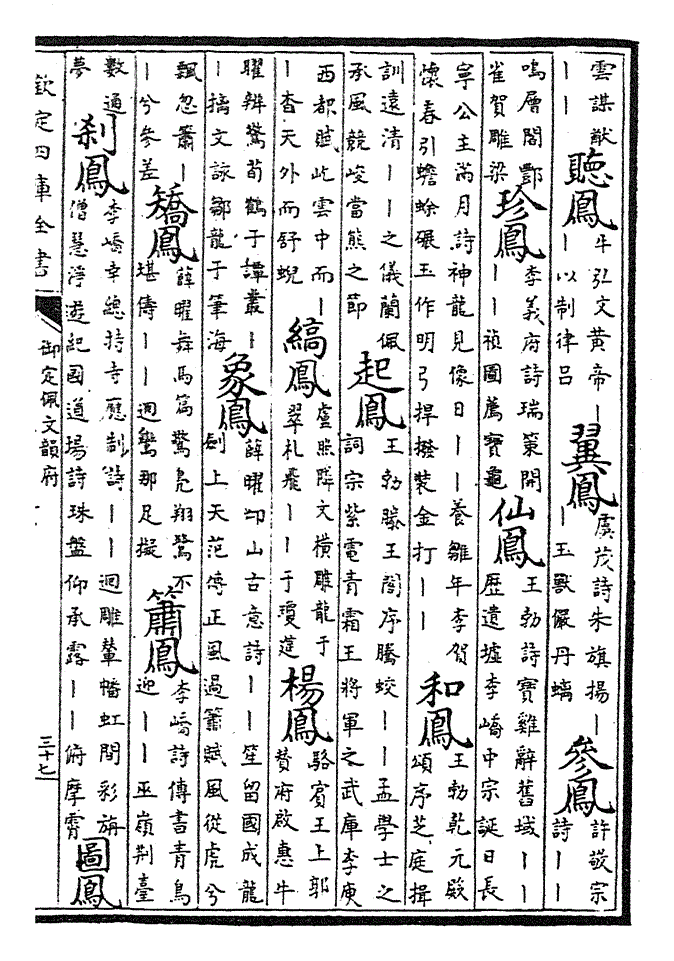 雲謀猷
｜｜
聽鳳
牛弘文黄帝｜
｜以制律吕
翼鳳
虞茂詩朱旗揚｜
｜玉獸儼丹螭
參鳳
許敬宗
詩｜｜
鳴層閣酆
雀賀雕梁
珍鳳
李義府詩瑞策開
｜｜禎圖薦寶龜
仙鳳
王勃詩寶雞辭舊域｜｜
歷遺墟李嶠中宗誕日長
寕公主滿月詩神龍見像日｜｜養雛年李賀
懷春引蟾蜍碾玉作明弓捍撥裝金打｜｜
和鳳
王勃乾元殿
頌序芝庭揖
訓遠清｜｜之儀蘭佩
承風競峻當熊之節
起鳳
王勃滕王閣序騰蛟｜｜孟學士之
詞宗紫電青霜王將軍之武庫李庾
西都賦此雲中而｜
｜杳天外而舒蜺
縞鳳
盧照隣文橫雕龍于
翠札飛｜｜于瓊筵
楊鳳
駱賓王上郭
贊府啟惠牛
曜辨驚荀鶴于譚叢｜
｜摛文詠鄒龍于筆海
象鳳
薛曜邙山古意詩｜｜笙留國成龍
劍上天范傳正風過簫賦風從虎兮
飄忽簫｜
｜兮參差
矯鳳
薛曜舞馬篇驚鳧翔鷺不
堪儔｜｜迴鸞那足擬
簫鳳
李嶠詩傳書青鳥
迎｜｜巫嶺荆臺
數通
夢
刹鳳
李嶠幸總持寺應制詩｜｜迴雕輦幡虹間彩旃
僧慧淨遊起國道場詩珠盤仰承露｜｜俯摩霄
圖鳳
欽定四庫全書
御定佩文韻府
三十七